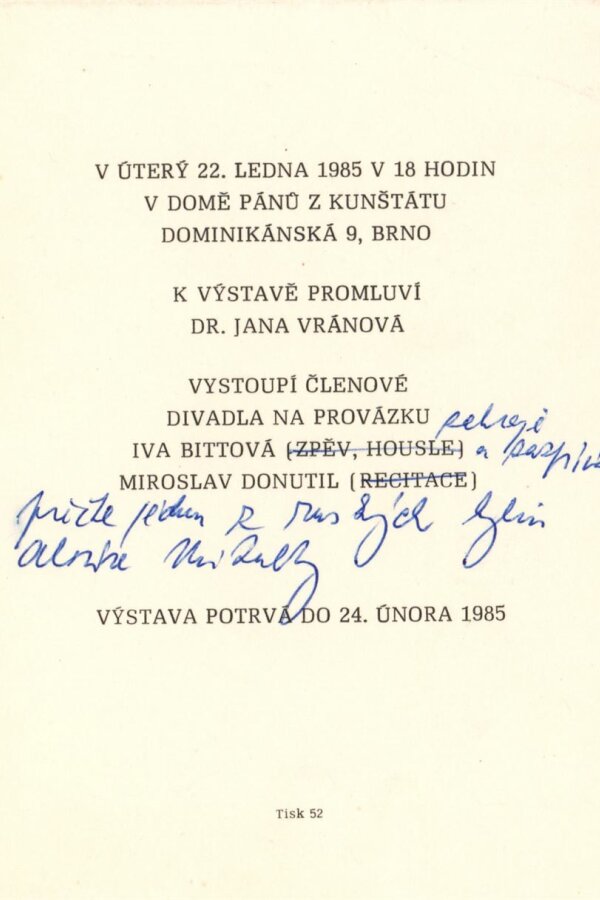 V ÚTERÝ 22. LEDNA 1985 V 18 HODIN
V DOMĚ PÁNŮ Z KUNŠTÁTU
DOMINIKÁNSKÁ 9, BRNO
K VÝSTAVĚ PROMLUVÍ
DR. JANA VRÁNOVÁ
VYSTOUPÍ ČLENOVÉ
DIVADLA NA PROVÁZKU sehraje
IVA BITTOVÁ (ZPĚV, HOUSLE) a
MIROSLAV DONUTIL (RECITACE)
přečte jednu z ruských bylin
Aloise Mikulky
VÝSTAVA POTRVÁ DO 24. ÚNORA 1985
Tisk 52